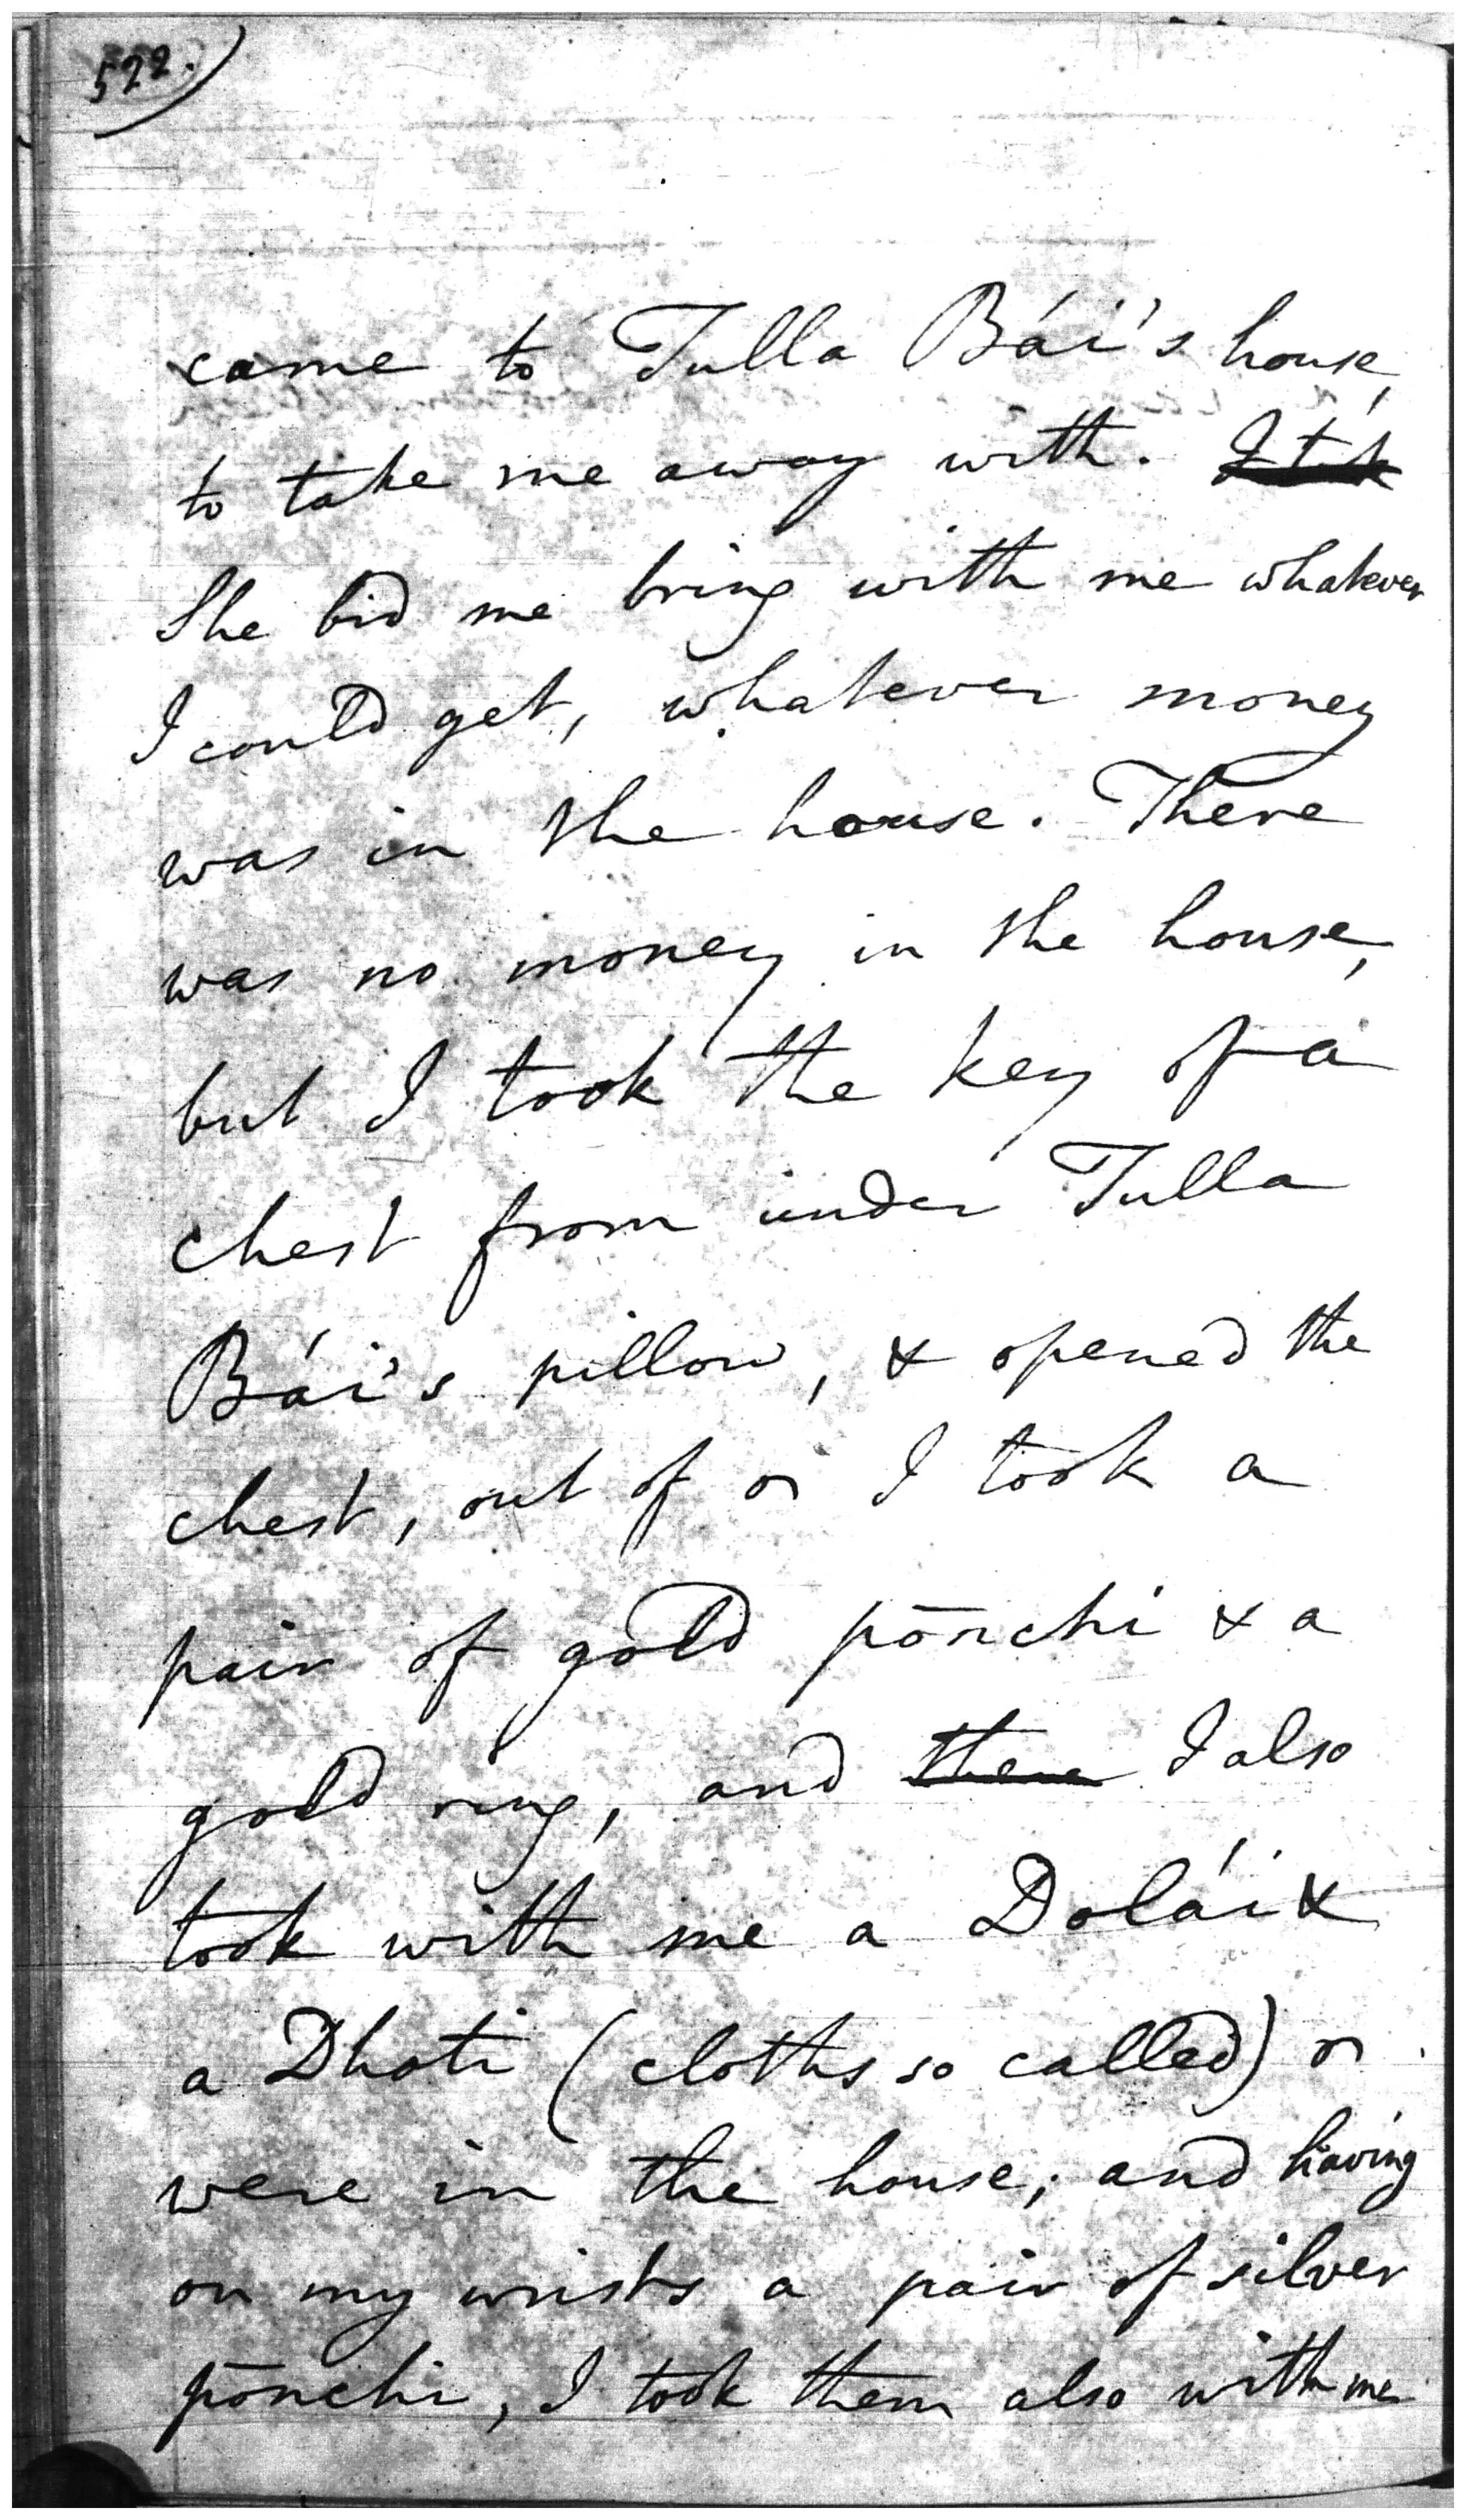 522.)
came to Tulla Bái's house,
to take me away with. I
She bid me bring with me whatever
I could get, whatever money
was in the house. There
was no money in the house,
but I took the key of a
chest from under Tulla
Bái's pillow, & opened the
chest, out of I took a
pair of gold pōnchi & a
gold ring, and there I also
took with me a Dolái &
a Dhoti (cloths so called)
were in the house; and having
on my wrists a pair of silver
pōnchi, I took them also with me